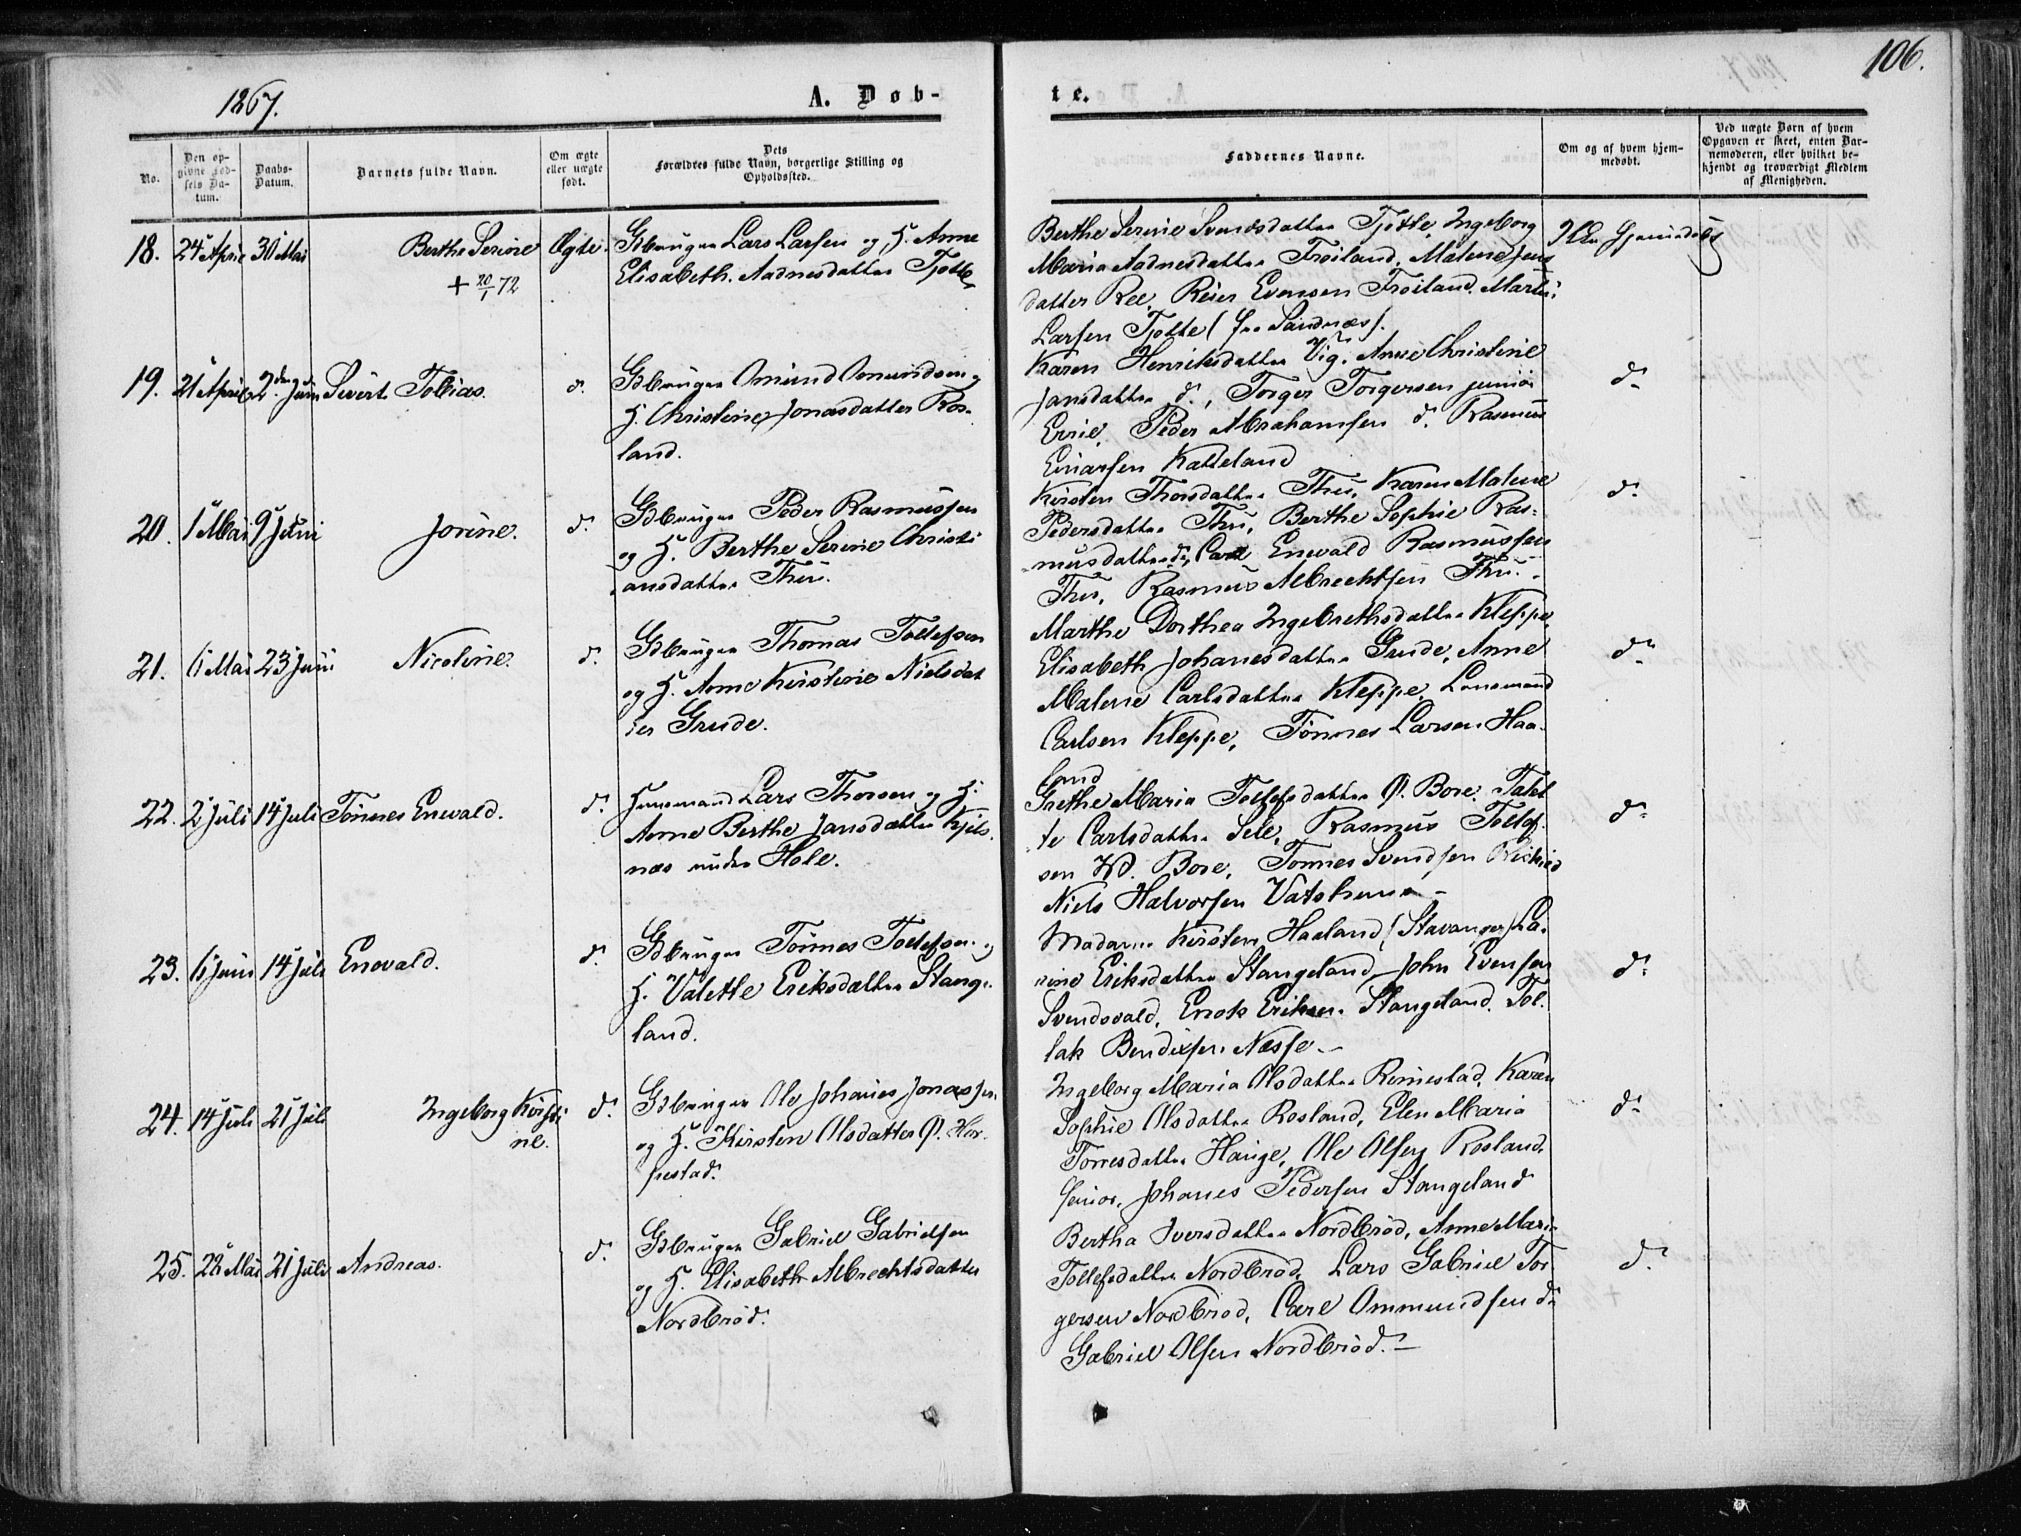 1867.
A. Døb-
te.
106.
No.
Den opgivne Fødsels Datum.
Daabs-Datum.
Barnets fulde Navn.
Om ægte eller uægte født.
Dets Forældres fulde Navn, borgerlige Stilling og Opholdssted.
Faddernes Navne.
Om og af hvem hjemmedøbt.
Ved uægte Børn af hvem Opgaven er skeet, enten Barnemoderen, eller hvilket bekjendt og troværdigt Medlem af Menigheden.
18. 24 April 30 Mai Berthe Serine Ægte. Gbruger Lars Larsen og H. Anne
+ 20/1 72
Elisabeth Aadnesdatter Tjotte
Berthe Serine Svendsdatter Tjøtte, Ingeborg
Maria Aadnesdatter Frøiland, Malene Jens
datter Ree, Reier Evensen Frøiland, Martin
Larsen Tjotte (fra Sandnæs).
19. 21 April 2den Juni Sivert Tobias. d. Gbruger Omund Omundsen og
H. Christine Jonasdatter Ros-
land.
Karen Henriksdatter Vig, Anne Christine
Jansdatter d., Torger Torgersen junior
Errie, Peder Abrahamsen d. Rasmus
Einarsen Katteland
d.
20. 1 Mai 9 Juni Jorine. d. Gbruger Peder Rasmussen
og H. Berthe Serine Christi
ansdatter Thu.
Kirsten Thorsdatter Thu, Karen Malene
Pedersdatter Thu, Berthe Sophie Ras-
musdatter d., Carl Enevald Rasmussen
Thu, Rasmus Albrechtsen Thu.
d.
21. 6 Mai 23 Juni Nicoline. d. Gbruger Thomas Tollefsen
og H. Anne Kirstine Nielsdat
ter Grude.
Marthe Dorthea Ingebrethsdatter Kleppe
Elisabeth Johanesdatter Grude, Anne
Malene Carlsdatter Kleppe, Lensmand
Carlsen Kleppe, Tønnes Larsen Haa-
land
d.
22. 2 Juli 14 Juli Tønnes Enevald. d. Huusmand Lars Thorsen og H.
Anne Berthe Jansdatter Kjøls
næs under Hole.
Grethe Maria Tollefsdatter Ø. Bore, Talet
te Carlsdatter Sele, Rasmus Tollef-
sen W. Bore, Tønnes Svendsen
Niels Halvorsen Vatshuus
d.
23. 6 Juni 14 Juli Enevald. d. Gbruger Tønnes Tollefsen og
H. Valette Eriksdatter Stange-
land.
Madame Kirsten Haaland (Stavanger) La-
rine Eriksdatter Stangeland, John Evensen
Svendsvald, Enok Eriksen Stangeland, Tol-
lak Bendixsen Næsse
d.
24. 14 Juli 21 Juli Ingeborg Kirsti
ne. d. Gbruger Ole Johanes Jonassen
og H. Kirsten Olsdatter Ø. Hor-
pestad.
Ingeborg Maria Olsdatter Rimestad, Karen
Sophie Olsdatter Rosland, Elen Maria
Torresdatter Hauge, Ole Olsen Rosland
senior, Johanes Pedersen Stangeland
d.
25. 28 Mai 21 Juli Andreas. d. Gbruger Gabriel Gabrielsen
og H. Elisabeth Albrechtsdatter
Nordbrød.
Bertha Iversdatter Nordbrød, Anne Maria
Tollefsdatter Nordbrød, Lars Gabriel Tor-
gersen Nordbrød, Carl Ommundsen d.
Gabriel Olsen Nordbrød.
d.